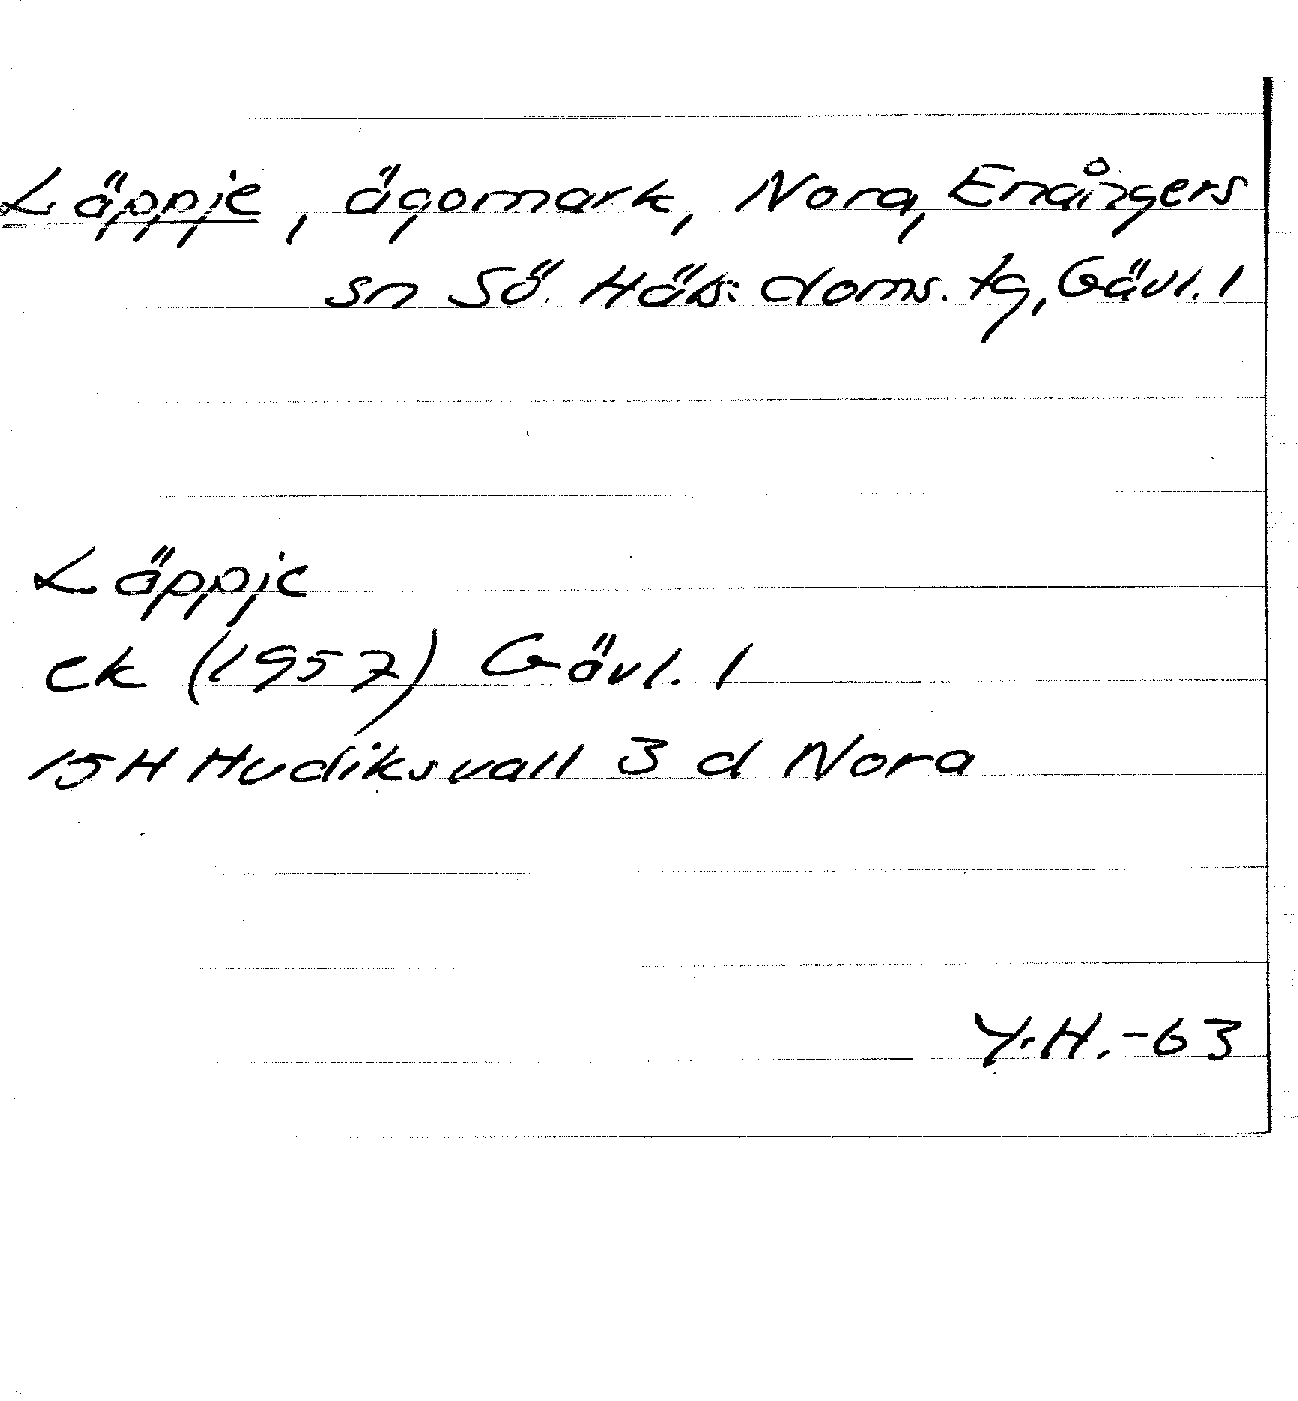 Läppje, ägomark, Nora, Enångers
sn Sö. Häls: doms. tg, Gävl. l
Läppje
ek (1957) Gävl. l
15H Hudiksvall 3 d Nora
Y.H.-63